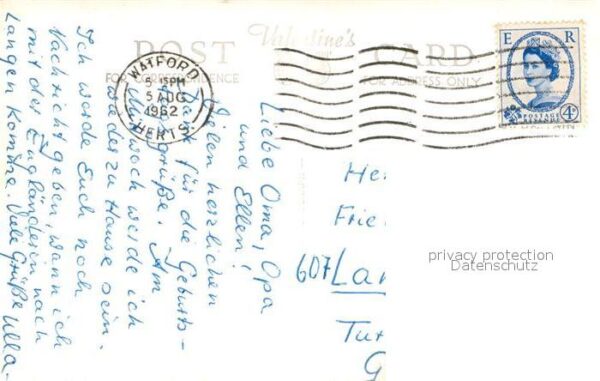 POST Valentine's CARD
FOR CORRESPONDENCE FOR ADDRESS ONLY
WATFORD
5 - PM
5 AUG
1962
HERTS.
E R
4D
POSTAGE
REVENUE
Liebe Oma, Opa
und Ellen!
Vielen herzlichen
Dank für die Geburts-
tagsgrüße. Am
Mittwoch werde ich
wieder zu Hause sein.
Ich werde Euch noch
Nachricht geben, wann ich
mit der Engländerin nach
Langen komme. Viele Grüße Ulla.
He
Frie
607 La
Tu
G
privacy protection
Datenschutz